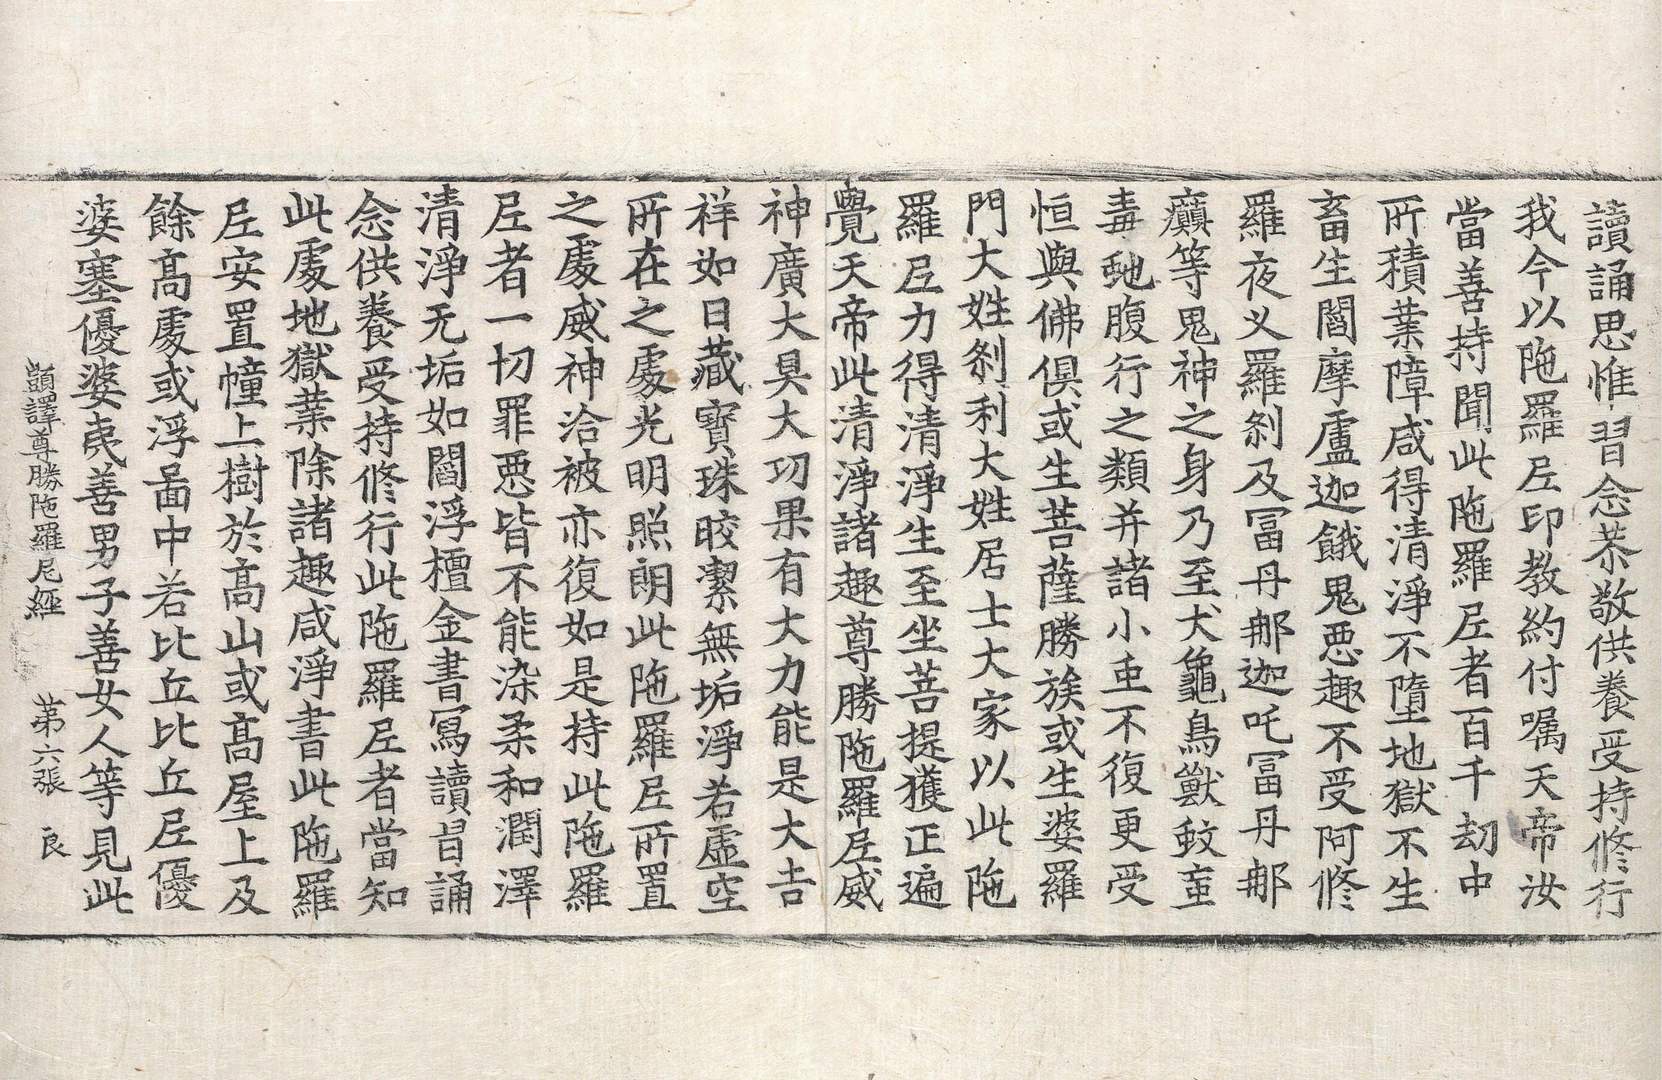 讀誦思惟習念恭敬供養受持修行
我今以陁羅𡰱印教約付嘱天帝汝
當善持聞此陁羅𡰱者百千劫中
所積業障咸得清淨不墮地獄不生
畜生閻摩盧迦餓鬼惡趣不受阿修
羅夜义羅刹及冨丹𨙻迦吒冨丹𨙻
癲等鬼神之身乃至犬龜鳥獸蚊䖟
毒虵腹行之類并諸小虫不復更受
恒與佛俱或生菩薩勝族或生婆羅
門大姓刹利大姓居士大家以此陁
羅𡰱力得清淨生至坐菩提獲正遍
覺天帝此清淨諸趣尊勝陁羅𡰱威
神廣大具大功果有大力能是大吉
祥如日藏寳珠晈潔無垢淨若虛空
所在之處光明照朗此陁羅𡰱所置
之處威神洽被亦復如是持此陁羅
𡰱者一切罪惡皆不能染柔和潤澤
清淨无垢如閻浮檀金書寫讀㫖誦
念供養受持修行此陁羅𡰱者當知
此處地獄業除諸趣咸淨書此陁羅
𡰱安置幢上樹於高山或高屋上及
餘高處或浮啚中若比丘比丘𡰱優
婆塞優婆夷善男子善女人等見此
顗譯尊勝陁羅尼經 第六張 良